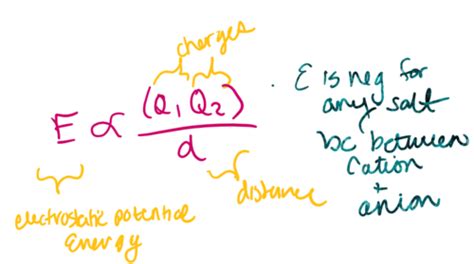 charges
E ∝ (Q₁Q₂)
d
electrostatic potential
Energy
distance
· E is neg for
any salt
bc between
Cation
+
anion